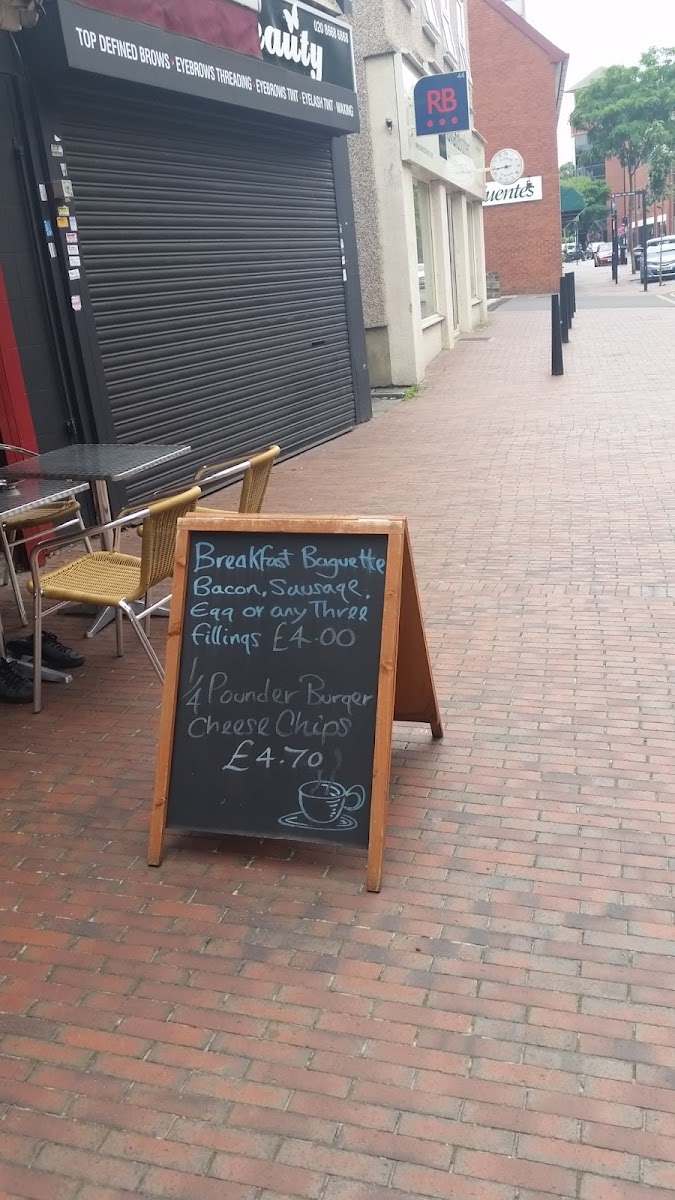 eauty
020 8668 6868
TOP DEFINED BROWS · EYEBROWS THREADING · EYEBROWS TINT · EYELASH TINT · WAXING
44
RB
uentes
Breakfast Baguette
Bacon, Sausage,
Egg or any Three
fillings £4.00
1/4 Pounder Burger
Cheese Chips
£4.70